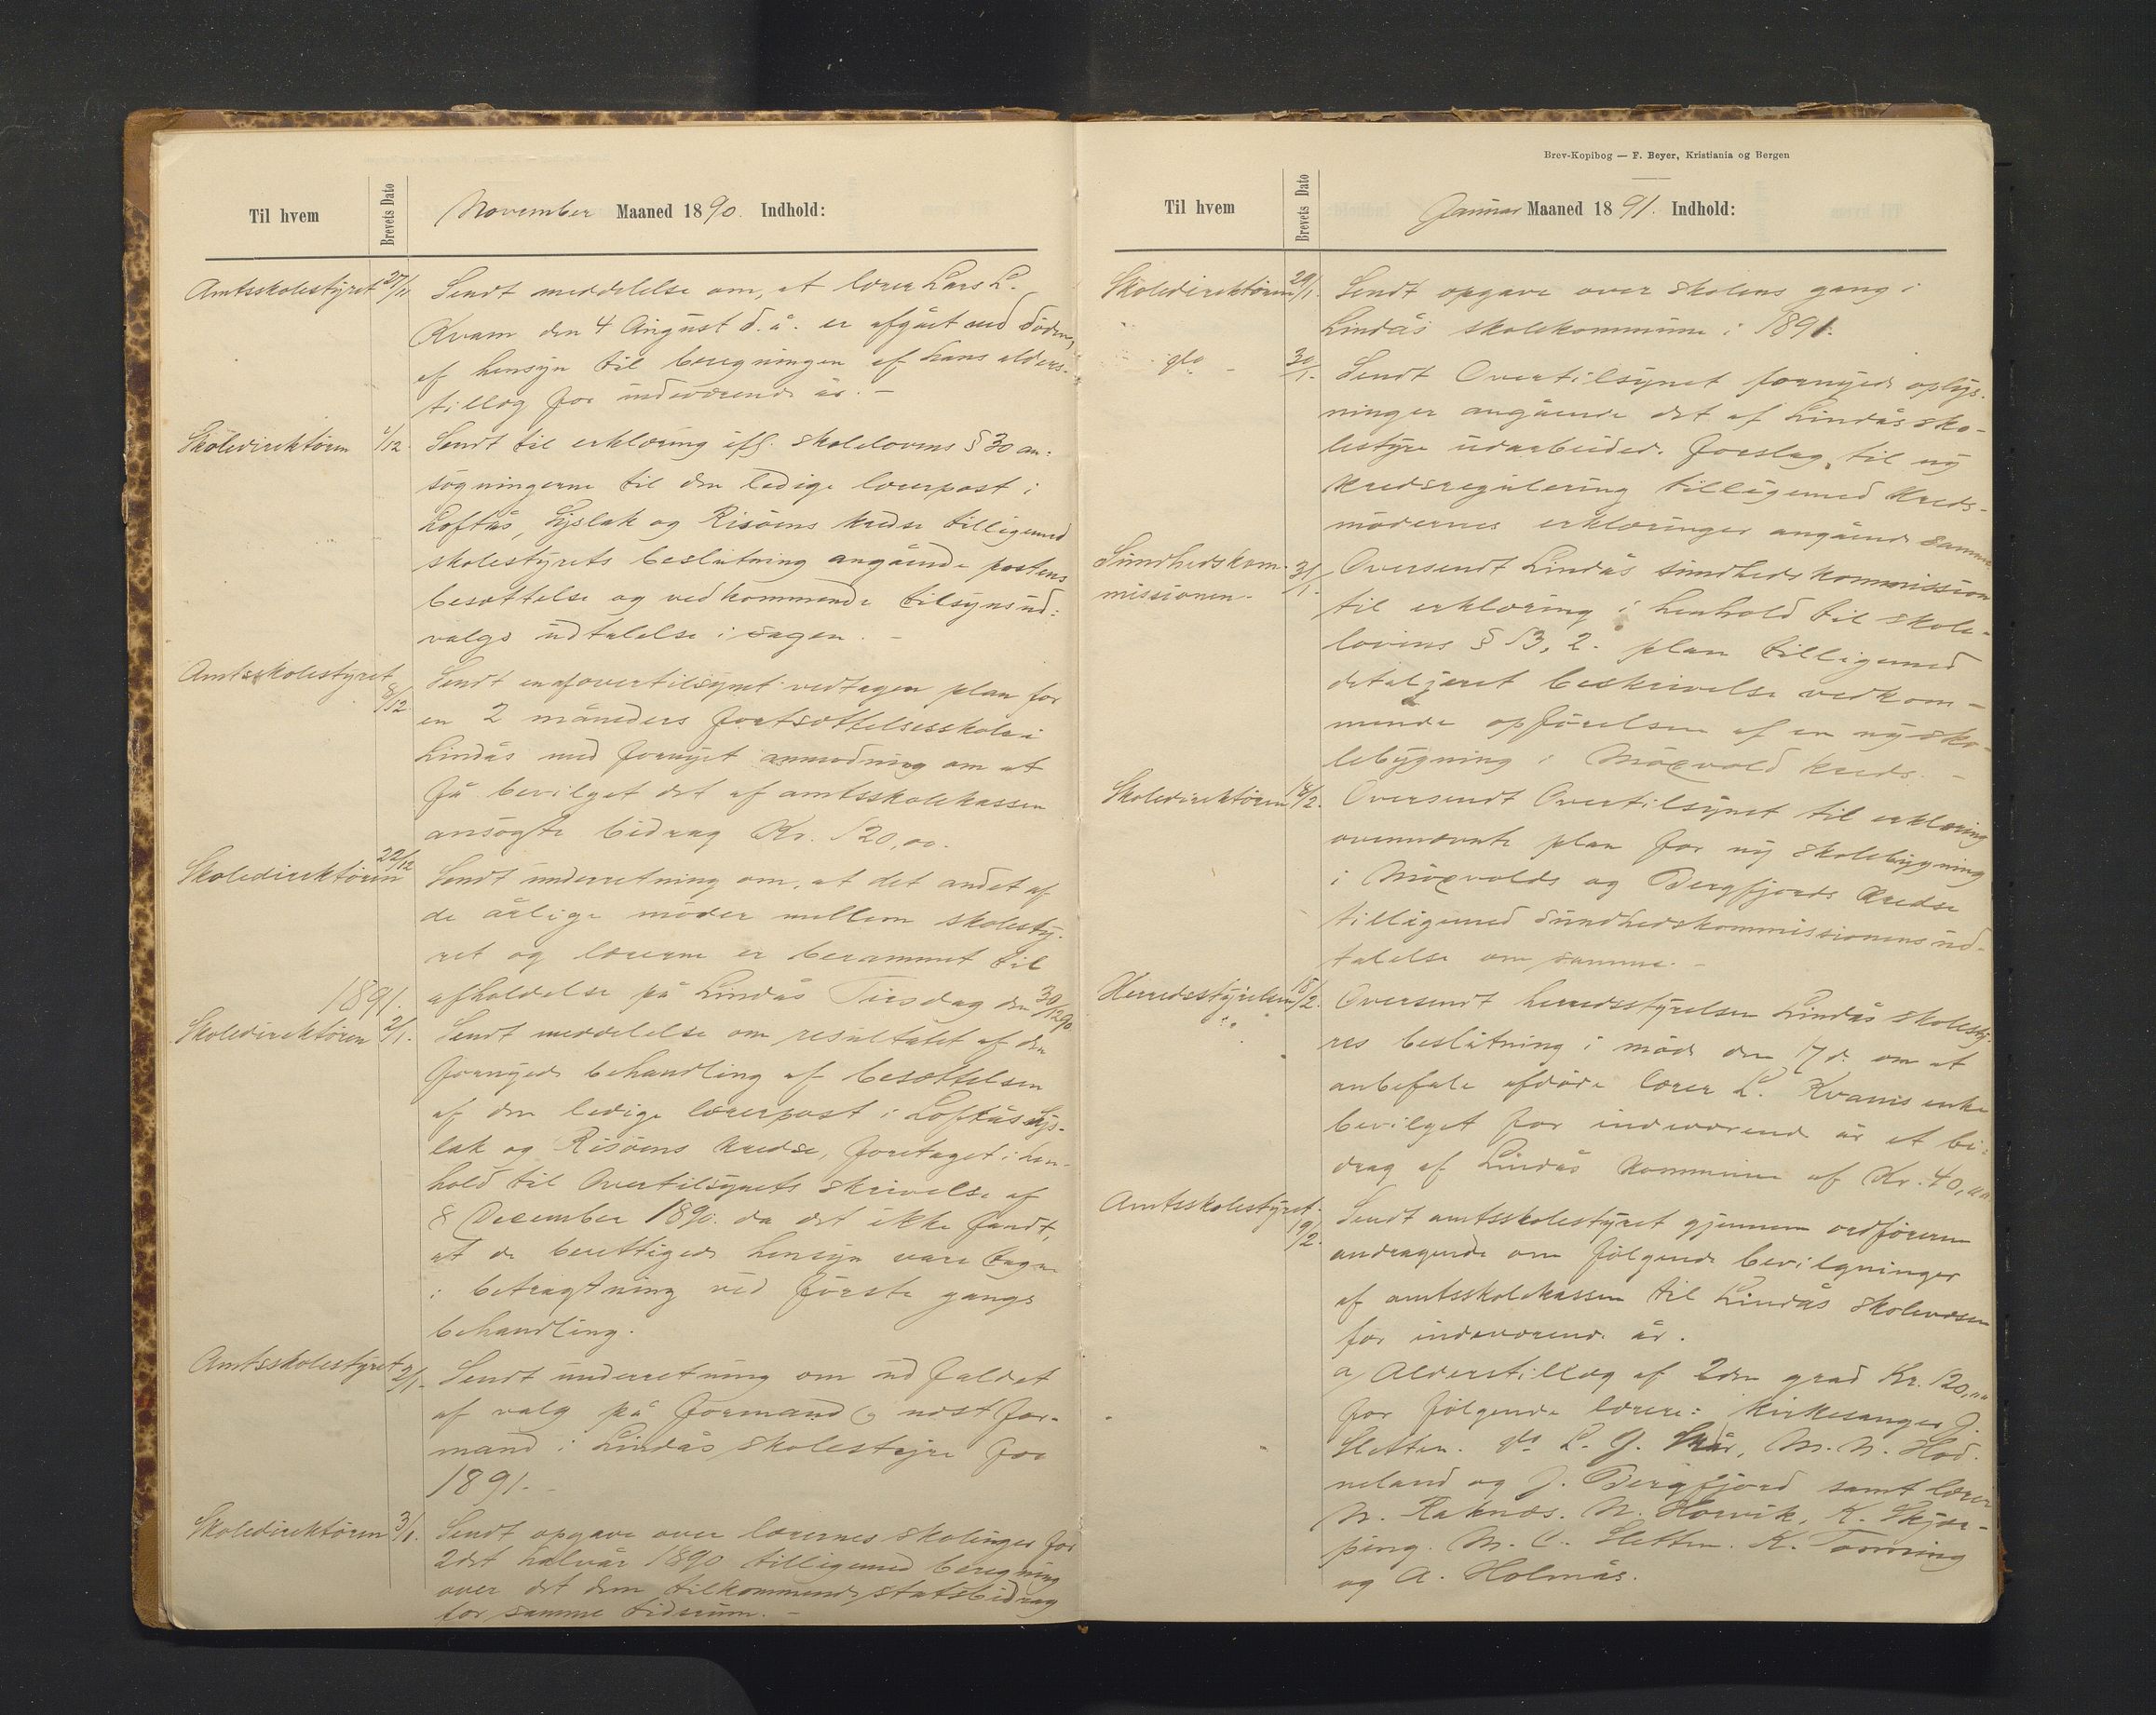 Til hvem
Brevets Dato
November Maaned 1890. Indhold:
Amtsskolestyret 27/11 Sendt meddelelse om, at lærer Lars L.
Kvam den 4 August d. å. er afgået ved döden,
af hensyn til beregningen af hans alders-
tillæg for indeværende år. –
Skoledirektören 1/12. Sendt til erklæring ifl. skolelovens § 30 an-
sögningerne til den ledige lærerpost i
Loftås, Lyslak og Risöens kredse tilligemed
skolestyrets beslutning angående postens
besættelse og vedkommende tilsynsud-
valgs udtalelse i sagen. –
Amtsskolestyret 8/12 Sendt en af overtilsynet vedtagen plan for
en 2 måneders fortsættelsesskole i
Lindås med fornyet anmodning om at
få bevilget det af amtsskolekassen
ansögte bidrag Kr. 120,00.
Skoledirektören 22/12 Sendt underretning om, at det andet af
de årlige möder mellem skolesty-
ret og lærerne er berammet til
afholdelse på Lindås Tirsdag den 30/12 90
1891.
Skoledirektören 2/1. Sendt meddelelse om resultatet af den
fornyede behandling af besættelsen
af den ledige lærerpost i Loftås Lys-
lak og Risöens kredse, foretaget i hen-
hold til Overtilsynets skrivelse af
8 December 1890. da det ikke fandt,
at de berettigede hensyn vare tagne
i betragtning ved förste gangs
behandling.
Amtsskolestyret 2/1. Sendt underretning om udfaldet
af valg på formand og næstfor-
mand i Lindås skolestyre for
1891. –
Skoledirektören 3/1. Sendt opgave over lærernes skolinger for
2det halvår 1890 tilligemed beregning
over det dem tilkommende statsbidrag
for samme tidsrum. –
Brev-Kopibog — F. Beyer, Kristiania og Bergen
Til hvem
Brevets Dato
Januar Maaned 1891. Indhold:
Skoledirektören 29/1. Sendt opgave over skolens gang i
Lindås skolekommune i 1891.
do – 30/1. Sendt Overtilsynet fornyede oplys-
ninger angående det af Lindås sko-
lestyre udarbeidede forslag til ny
kredsregulering tilligemed kreds-
mödernes erklæringer angående samme
Sundhedskom- 31/1. Oversendt Lindås sundhedskommission
missionen. til erklæring i henhold til skole-
lovens § 53, 2. plan tilligemed
detaljeret beskrivelse vedkom-
mende opförelsen af en ny sko-
lebygning i Moxvold kreds. –
Skoledirektören 18/2. Oversendt Overtilsynet til erklæring
ovennævnte plan for ny skolebygning
i Moxvolds og Bergfjords kredse
tilligemed sundhedskommissionens ud-
talelse om samme. –
Herredsstyrelsen 18/2. Oversendt herredsstyrelsen Lindås skolesty-
res beslutning i möde den 17 d. om at
anbefale afdöde lærer L. Kvams enke
bevilget for indeværende år et bi-
drag af Lindås kommune af Kr. 40,00.
Amtsskolestyret. 19/2. Sendt amtsskolestyret gjennem ordföreren
andragende om fölgende bevilgninger
af amtsskolekassen til Lindås skolevæsen
for indeværende år.
a) Alderstillæg af 2den grad Kr. 120,00
for fölgende lærere: kirkesanger J.
Sletten. do L. J. Skår, M. N. Hod-
neland og J. Bergfjord samt lærer
N. Raknæs. N. Horvik, K. Skjer-
ping. M. C. Sletten. K. Tonning
og A. Holmås.